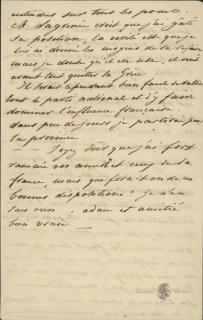 entendus sur tous les points.
M. Lagrené croit que j'ai gâté
sa position, la vérité est que je
lui ai donné les moyens de la refaire
mais je doute qu'il en use, il veut
avant tout quitter la Grèce
Il serait cependant bien facile de rallier
tout le parti national et d'y faire
dominer l'influence française
dans peu de jours je partirai pour
la province
Soyez sûr que j'ai fort
ranimé vos amitiés et ceux de la
france, mais que fera-t-on de ces
bonnes dispositions? je n'en
sais rien. adieu et amitié
bien vraie